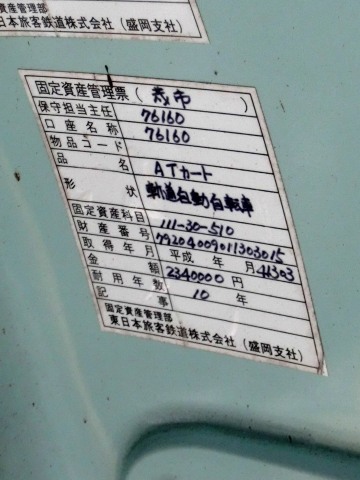 管理部
日本旅客鉄道株式会社(盛岡支社)
固定資産管理票(茂市)
保守担当主任 76160
口座名称 76160
物品コード
品名 ATカート
形状 軌道自動自転車
固定資産科目 111-30-510
財産番号 79204009011303015
取得年月 平成 年 月 H1303
金額 2340000円
耐用年数 10年
記事
固定資産管理部
東日本旅客鉄道株式会社(盛岡支社)